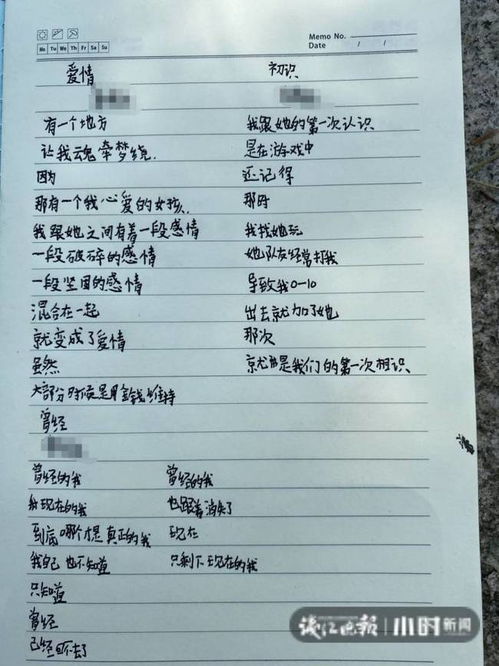 Memo No.
Mo Tu We Th Fr Sa Su
Date / /
爱情
有一个地方
让我魂牵梦绕
因为
那有一个我心爱的女孩.
我跟她之间有着一段感情
一段破碎的感情
一段坚固的感情
混合在一起
就变成了爱情
虽然
大部分时候是用金钱维持
初识
我跟她的第一次认识
是在游戏中
还记得
那时
我找她玩
她队友经常打我
导致我0-10
出去就加了她
那次
就是我们的第一次相识
曾经
曾经的我
和现在的我
到底哪个才是真正的我
我自己也不知道
只知道
曾经
已经回不去了
曾经的我
也跟着消失了
现在
只剩下现在的我
钱江晚报
小时新闻